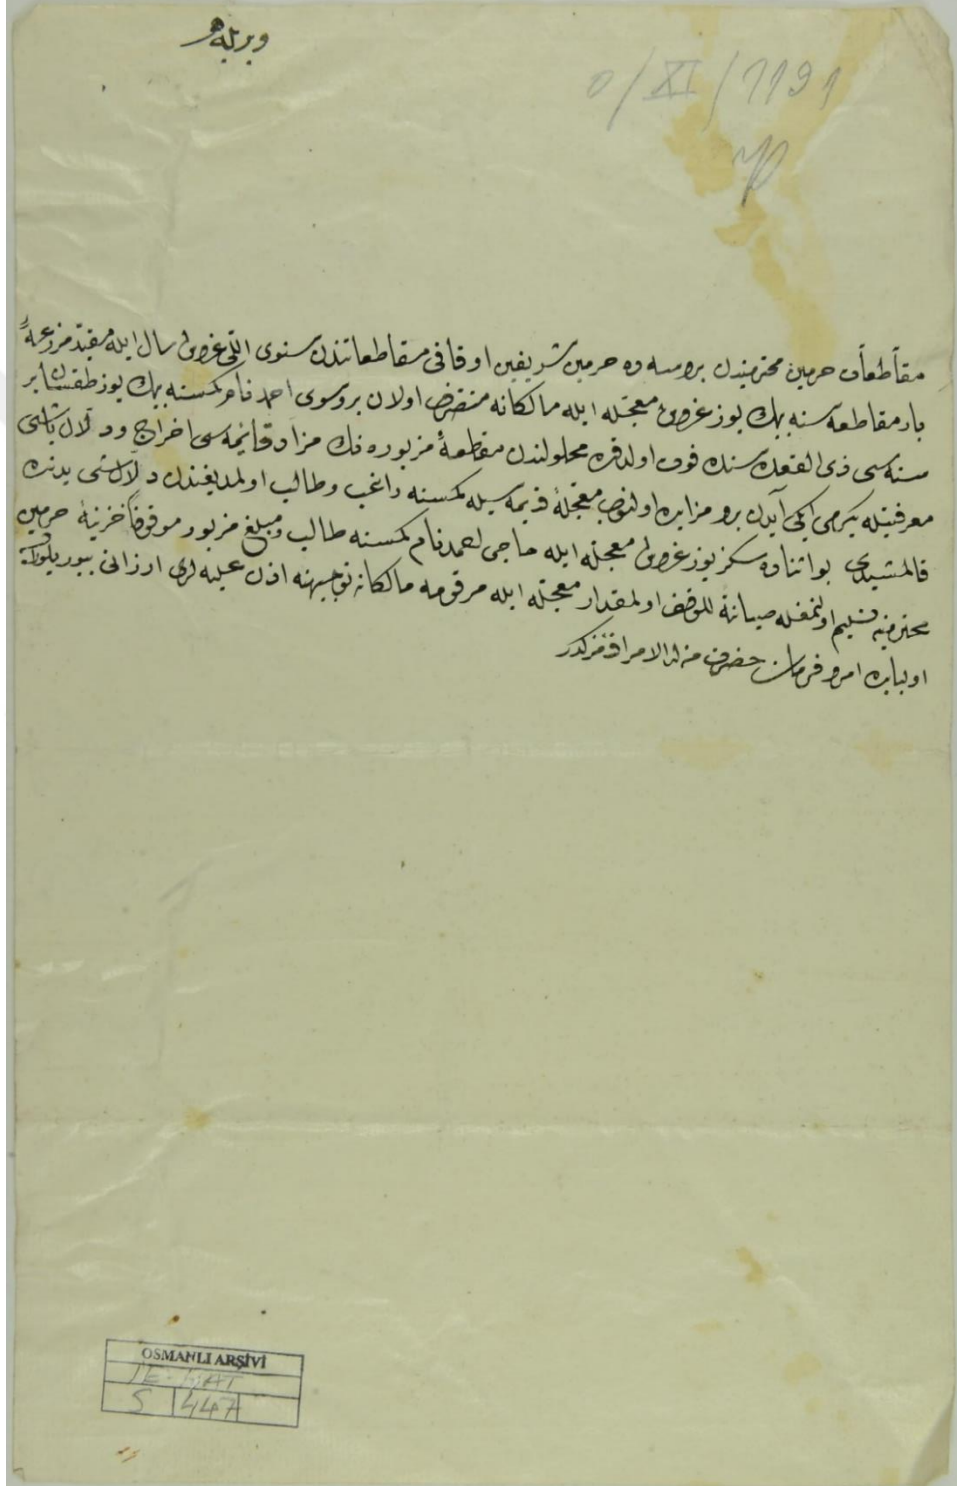 ويريله
5/XI/1191
مقاطعات حرمين محترميندن بروسه ده حرمين شريفين اوقافى مقاطعاتندن سنوى اللى غروش مال ايله مقيد مزرعه
مقاطعه سنه بيك يوز غروش معجله ايله مالكانه متصرف اولان بروسوى احمد نام كمسنه بيك يوز طقسان بر
سنه سى ذى القعده سنده فوت اولدقده محلولندن مقاطعهٔ مزبوره نك مزاد قائمه سى اخراج و دلال باشى
معرفتيله يكرمى ايكى آيدن برو مزايده اولنوب معجلهٔ قديمه سيله كمسنه راغب وطالب اولمديغندن دلال باشى يدنده
قالمشيدى بو اثناده سكز يوز غروش معجله ايله حاجى احمد نام كمسنه طالب ومبلغ مزبور خزينهٔ حرمين
محترمينه تسليم اولنمغله صيانة للوقف اولمقدار معجله ايله مرقومه مالكانه توجيهنه اذن عليه لرى ارزانى بيوريلور
اولبابده امر و فرمان حضرت من له الامر افندمكدر
OSMANLI ARŞİVİ
İE
5 447